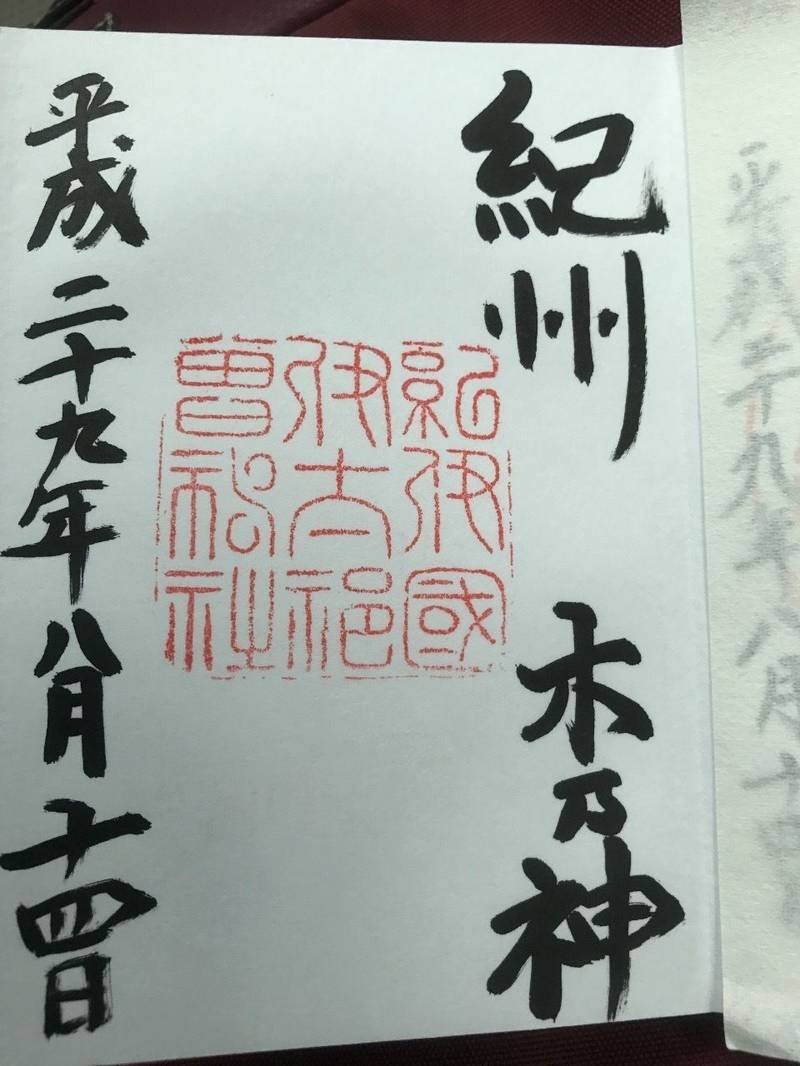 紀州　木乃神
紀伊國
伊太祁
曽神社
平成二十九年八月十四日
平成二十九年八月十四日